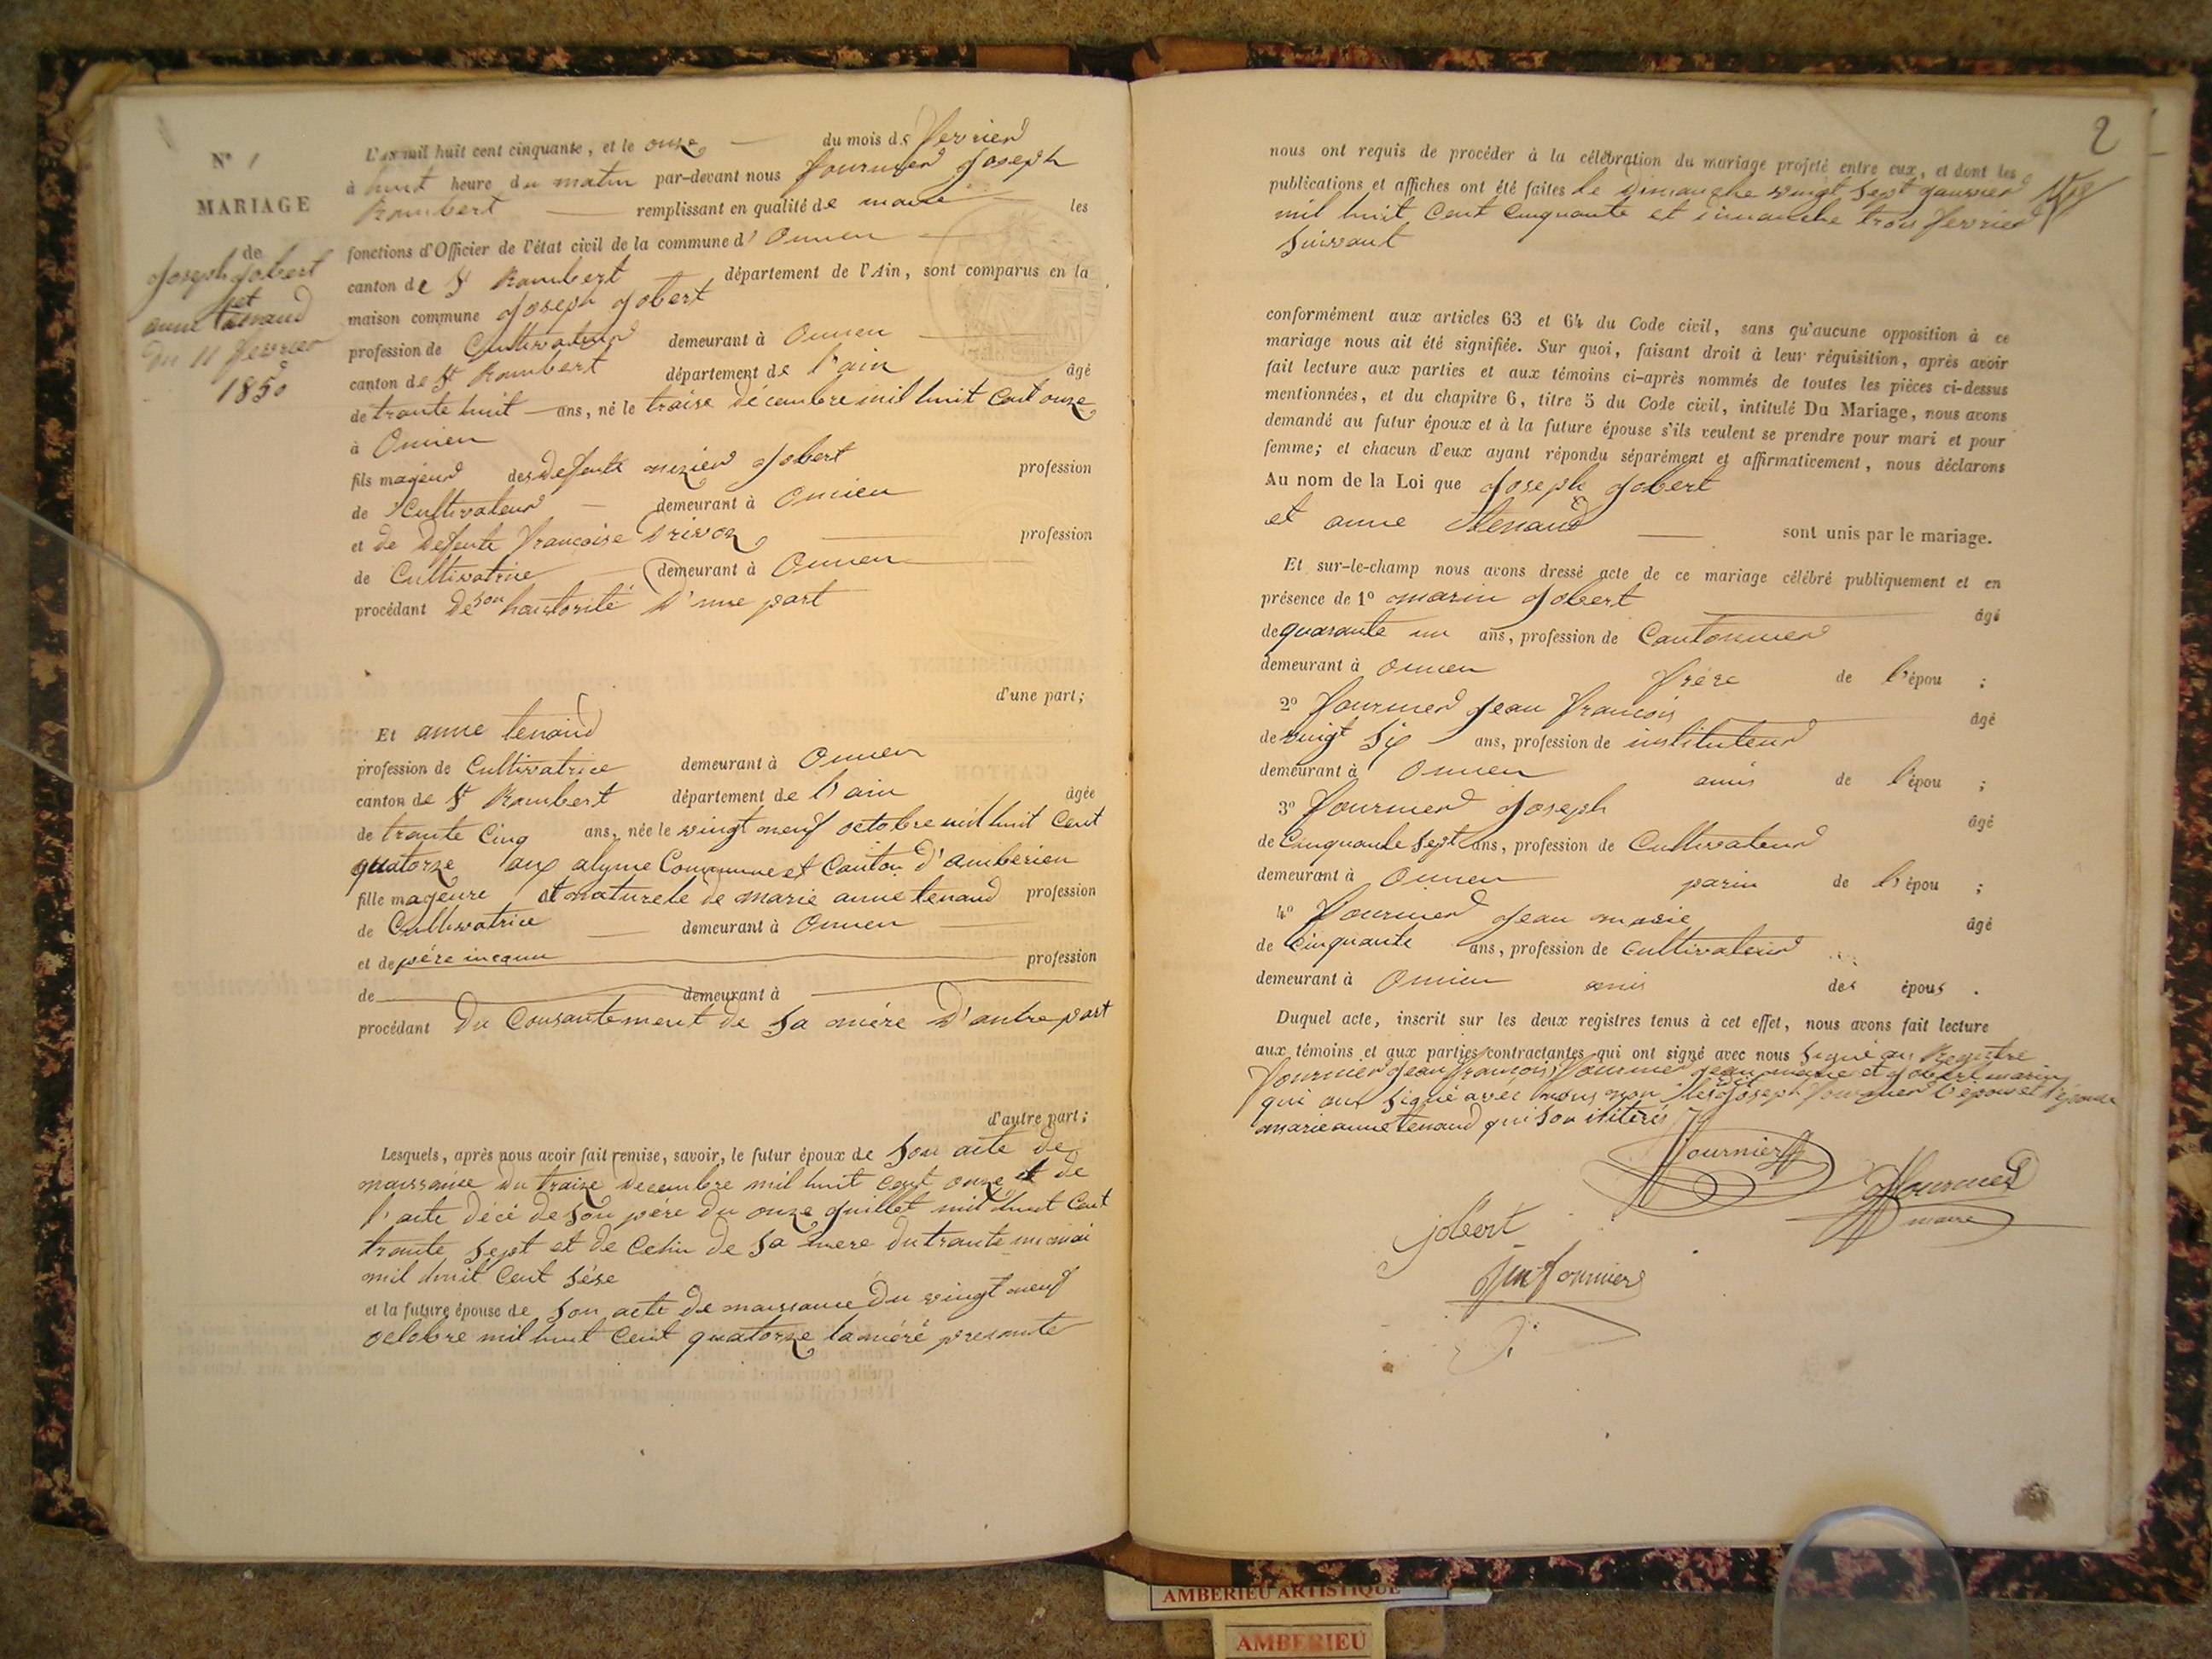 N° 1
MARIAGE
de
Joseph Jobert
et
anne tenaud
du 11 fevrier
1850
L'an mil huit cent cinquante, et le onze du mois de fevrier
à huit heure du matin par-devant nous fournier Joseph
Rambert remplissant en qualité de maire les
fonctions d'Officier de l'état civil de la commune d' Oncieu
canton de St Rambert département de l'Ain, sont comparus en la
maison commune Joseph Jobert
profession de Cultivateur demeurant à Oncieu
canton de St Rambert département de l'ain âgé
de trante huit ans, né le traise décembre mil huit cent onze
à Oncieu
fils majeur des defunt nizier Jobert profession
de Cultivateur demeurant à Oncieu
et de defente francoise Drivon profession
de Cultivatrice demeurant à Oncieu
procédant de son hautorité d'une part
d'une part;
Et anne tenaud
profession de Cultivatrice demeurant à Oncieu
canton de St Rambert département de l'ain âgée
de trante Cinq ans, née le vingt neuf octobre mil huit Cent
quatorze aux alyme Commune et Canton d'amberieu
fille mageure et naturele de marie anne tenaud profession
de Cultivatrice demeurant à Oncieu
et de père inconu profession
de demeurant à
procédant du Consantement de sa mère d'autre part
d'autre part;
Lesquels, après nous avoir fait remise, savoir, le futur époux de son acte de
naissance du traize decembre mil huit cent onze et de
l'acte décé de son père du onze juillet mil huit Cent
trante sept et de Celui de sa mere du trante un mai
mil huit Cent sése
et la future épouse de son acte de naissance du vingt neuf
octobre mil huit Cent quatorze la mére presante
2
nous ont requis de procéder à la célébration du mariage projeté entre eux, et dont les
publications et affiches ont été faites le Dimanche vingt sept janvier
mil huit Cent Cinquante et dimanche trois fevrier
suivant
conformément aux articles 63 et 64 du Code civil, sans qu'aucune opposition à ce
mariage nous ait été signifiée. Sur quoi, faisant droit à leur réquisition, après avoir
fait lecture aux parties et aux témoins ci-après nommés de toutes les pièces ci-dessus
mentionnées, et du chapitre 6, titre 5 du Code civil, intitulé Du Mariage, nous avons
demandé au futur époux et à la future épouse s'ils veulent se prendre pour mari et pour
femme; et chacun d'eux ayant répondu séparément et affirmativement, nous déclarons
Au nom de la Loi que Joseph Jobert
et anne tenaud sont unis par le mariage.
Et sur-le-champ nous avons dressé acte de ce mariage célébré publiquement et en
présence de 1° marin Jobert âgé
de quarante un ans, profession de Cantonnier
demeurant à Oncieu frére de l'épou ;
2° fournier Jean francois âgé
de vingt six ans, profession de instituteur
demeurant à Oncieu amis de l'épou ;
3° fournier Joseph âgé
de Cinquante sept ans, profession de Cultivateur
demeurant à Oncieu parin de l'épou ;
4° fournier Jean marie âgé
de Cinquante ans, profession de cultivateur
demeurant à Oncieu amis des épous .
Duquel acte, inscrit sur les deux registres tenus à cet effet, nous avons fait lecture
aux témoins et aux parties contractantes qui ont signé avec nous signé au Registre
fournier Jean francois, fournier Jean marie et Jobert marin
qui ont signé avec nous non les dit Joseph fournier l'épou et l'épouse
marie anne tenaud qui son ilitèrés
fournier
Jobert
fournier
maire
Jm fournier
AMBERIEU ARTISTIQUE
AMBERIEU